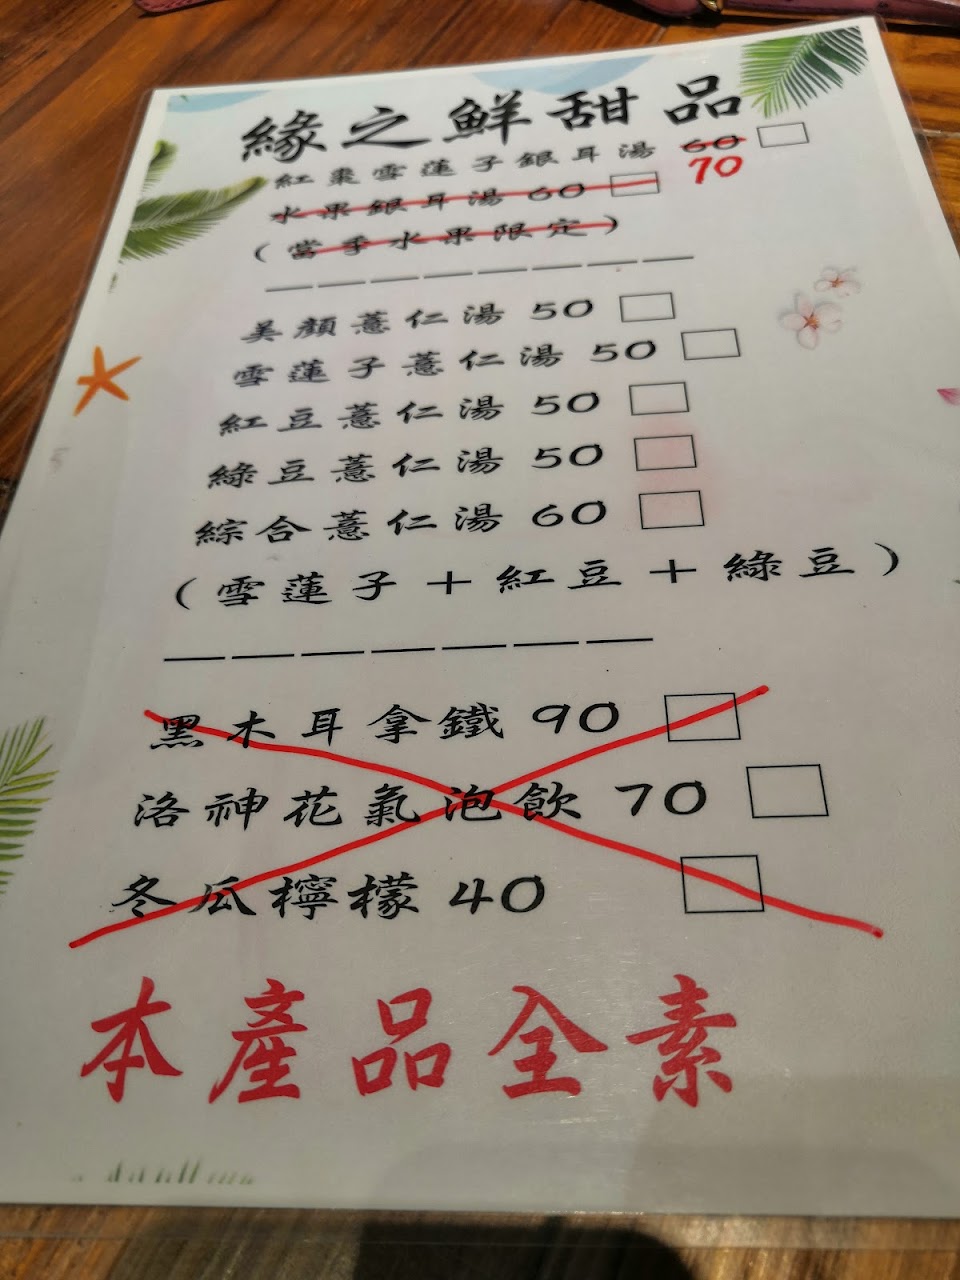 緣之鮮甜品
紅棗雪蓮子銀耳湯 60
70
水果銀耳湯 60
(當季水果限定)
美顏薏仁湯 50
雪蓮子薏仁湯 50
紅豆薏仁湯 50
綠豆薏仁湯 50
綜合薏仁湯 60
(雪蓮子+紅豆+綠豆)
黑木耳拿鐵 90
洛神花氣泡飲 70
冬瓜檸檬 40
本產品全素